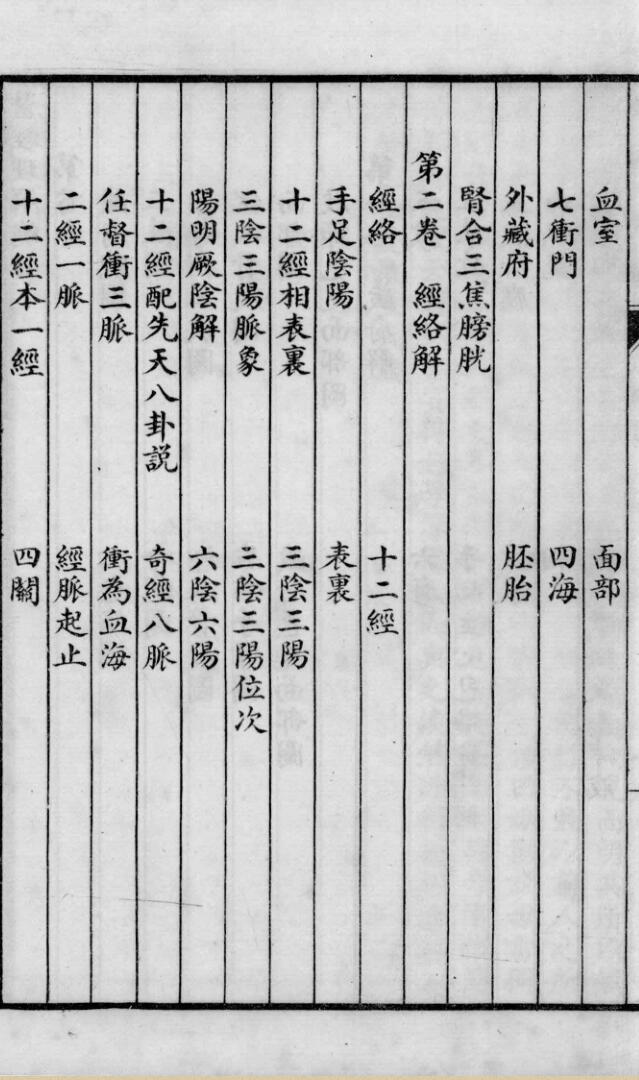 血室　面部
七衝門　四海
外藏府　胚胎
腎合三焦膀胱
第二卷　經絡解
經絡　十二經
手足陰陽　表裏
十二經相表裏　三陰三陽
三陰三陽脈象　三陰三陽位次
陽明厥陰解　六陰六陽
十二經配先天八卦説　奇經八脈
任督衝三脈　衝為血海
二經一脈　經脈起止
十二經本一經　四關